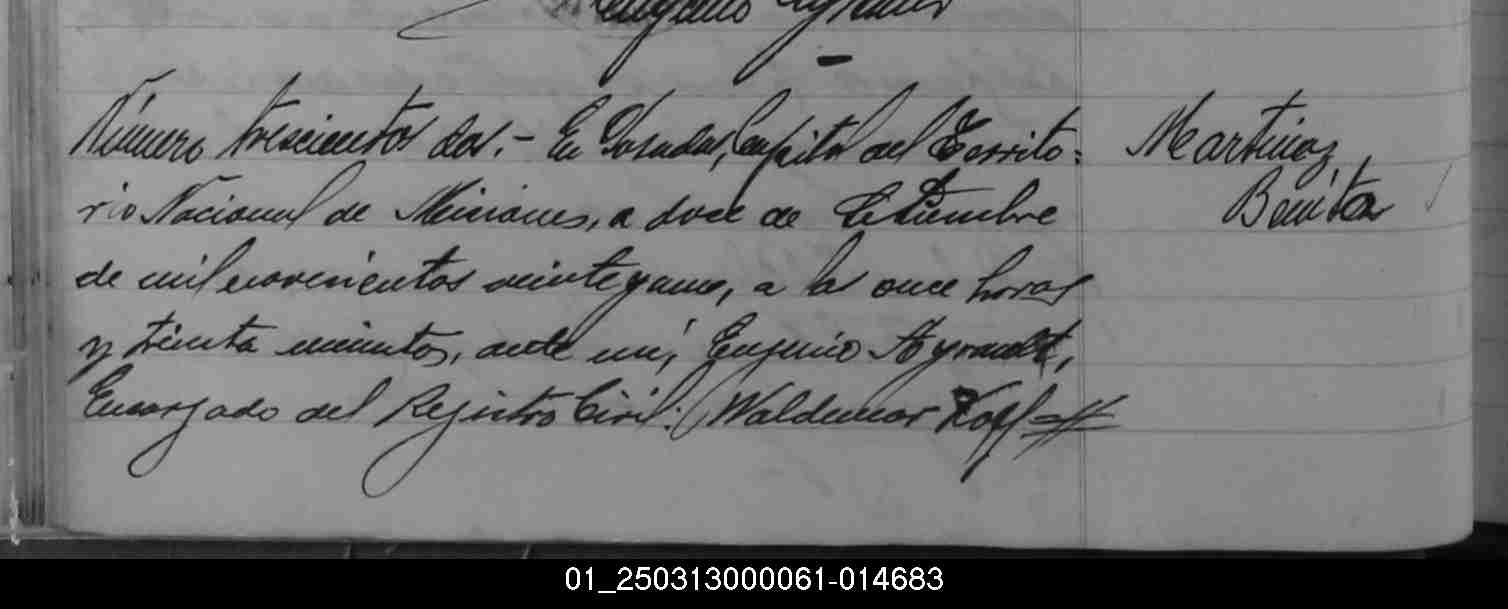 Eugenio Ayrault
Número trescientos dos.- En Posadas, Capital del Territo=
rio Nacional de Misiones, a doce de Setiembre
de mil novecientos veinte y uno, a la once horas
y treinta minutos, ante mí, Eugenio Ayrault,
Encargado del Registro Civil: Waldemar
Martinez,
Benita
01_250313000061-014683